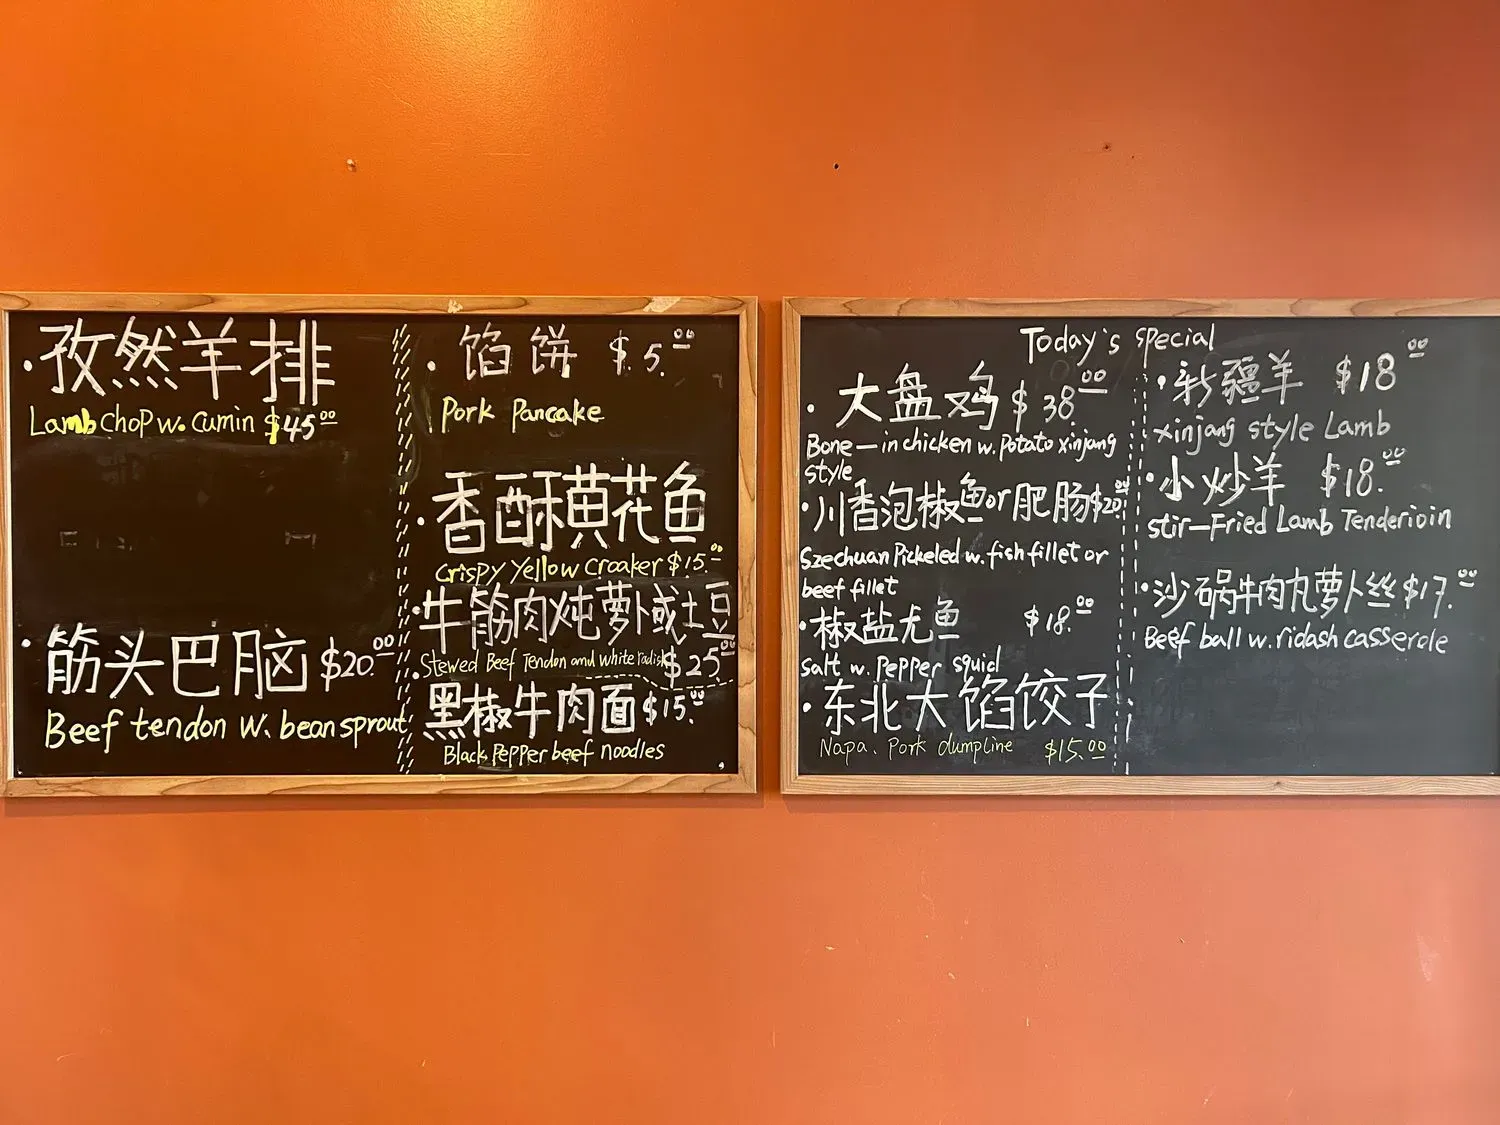 ·孜然羊排
Lamb Chop w. Cumin $45.00
·筋头巴脑 $20.00
Beef tendon w. bean sprout
·馅饼 $5.00
Pork Pancake
·香酥黄花鱼
Crispy Yellow Croaker $15.00
·牛筋肉炖萝卜或土豆
Stewed Beef Tendon and white radish $25.00
·黑椒牛肉面 $15.00
Black Pepper beef noodles
Today's special
·大盘鸡 $38.00
Bone-in chicken w. Potato xinjang
style
·川香泡椒鱼or肥肠 $20.00
Szechuan Pickeled w. fish fillet or
beef fillet
·椒盐尤鱼 $18.00
Salt w. Pepper squid
·东北大馅饺子
Napa. Pork dumpline $15.00
·新疆羊 $18.00
xinjang style Lamb
·小炒羊 $18.00
stir-Fried Lamb Tenderioin
·沙锅牛肉丸萝卜丝 $17.00
Beef ball w. ridash casserole